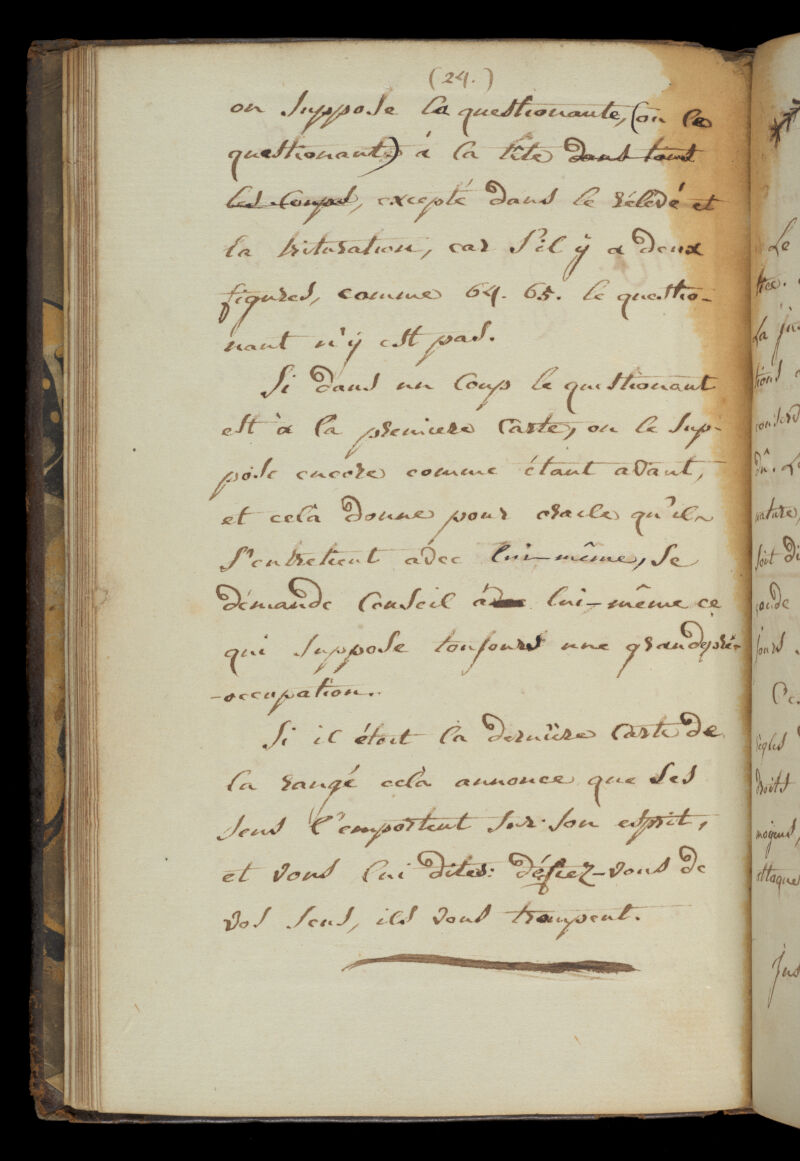 (24.)
on suppose la questionante, (ou le
questionant) à la tête dans tous
les coups, excepté dans le rélévé et
la trituration, car s'il ÿ a deux
figures, comme 64. 65. le questio-
nant n'ÿ est pas.
Si dans un coup le questionant
est à la premiere carte, on le sup-
pose encore comme étant avant,
et celà donne pour oracle qu'il
s'entretient avec lui-même, se
démande conseil à lui-même ce
qui suppose toujours une grande pré-
-occupation.
Si il étoit la derniére carte de
la rangé celà annonce que ses
sens l'emportent sur son esprit,
et vous lui dites: défiez-vous de
vos sens, ils vous trompent.
Le
trée.
La ju
tions
conserv
dû. Le
nature,
soit di
conde
jours
Ce
règles
droits
moyens,
attaque
Jus